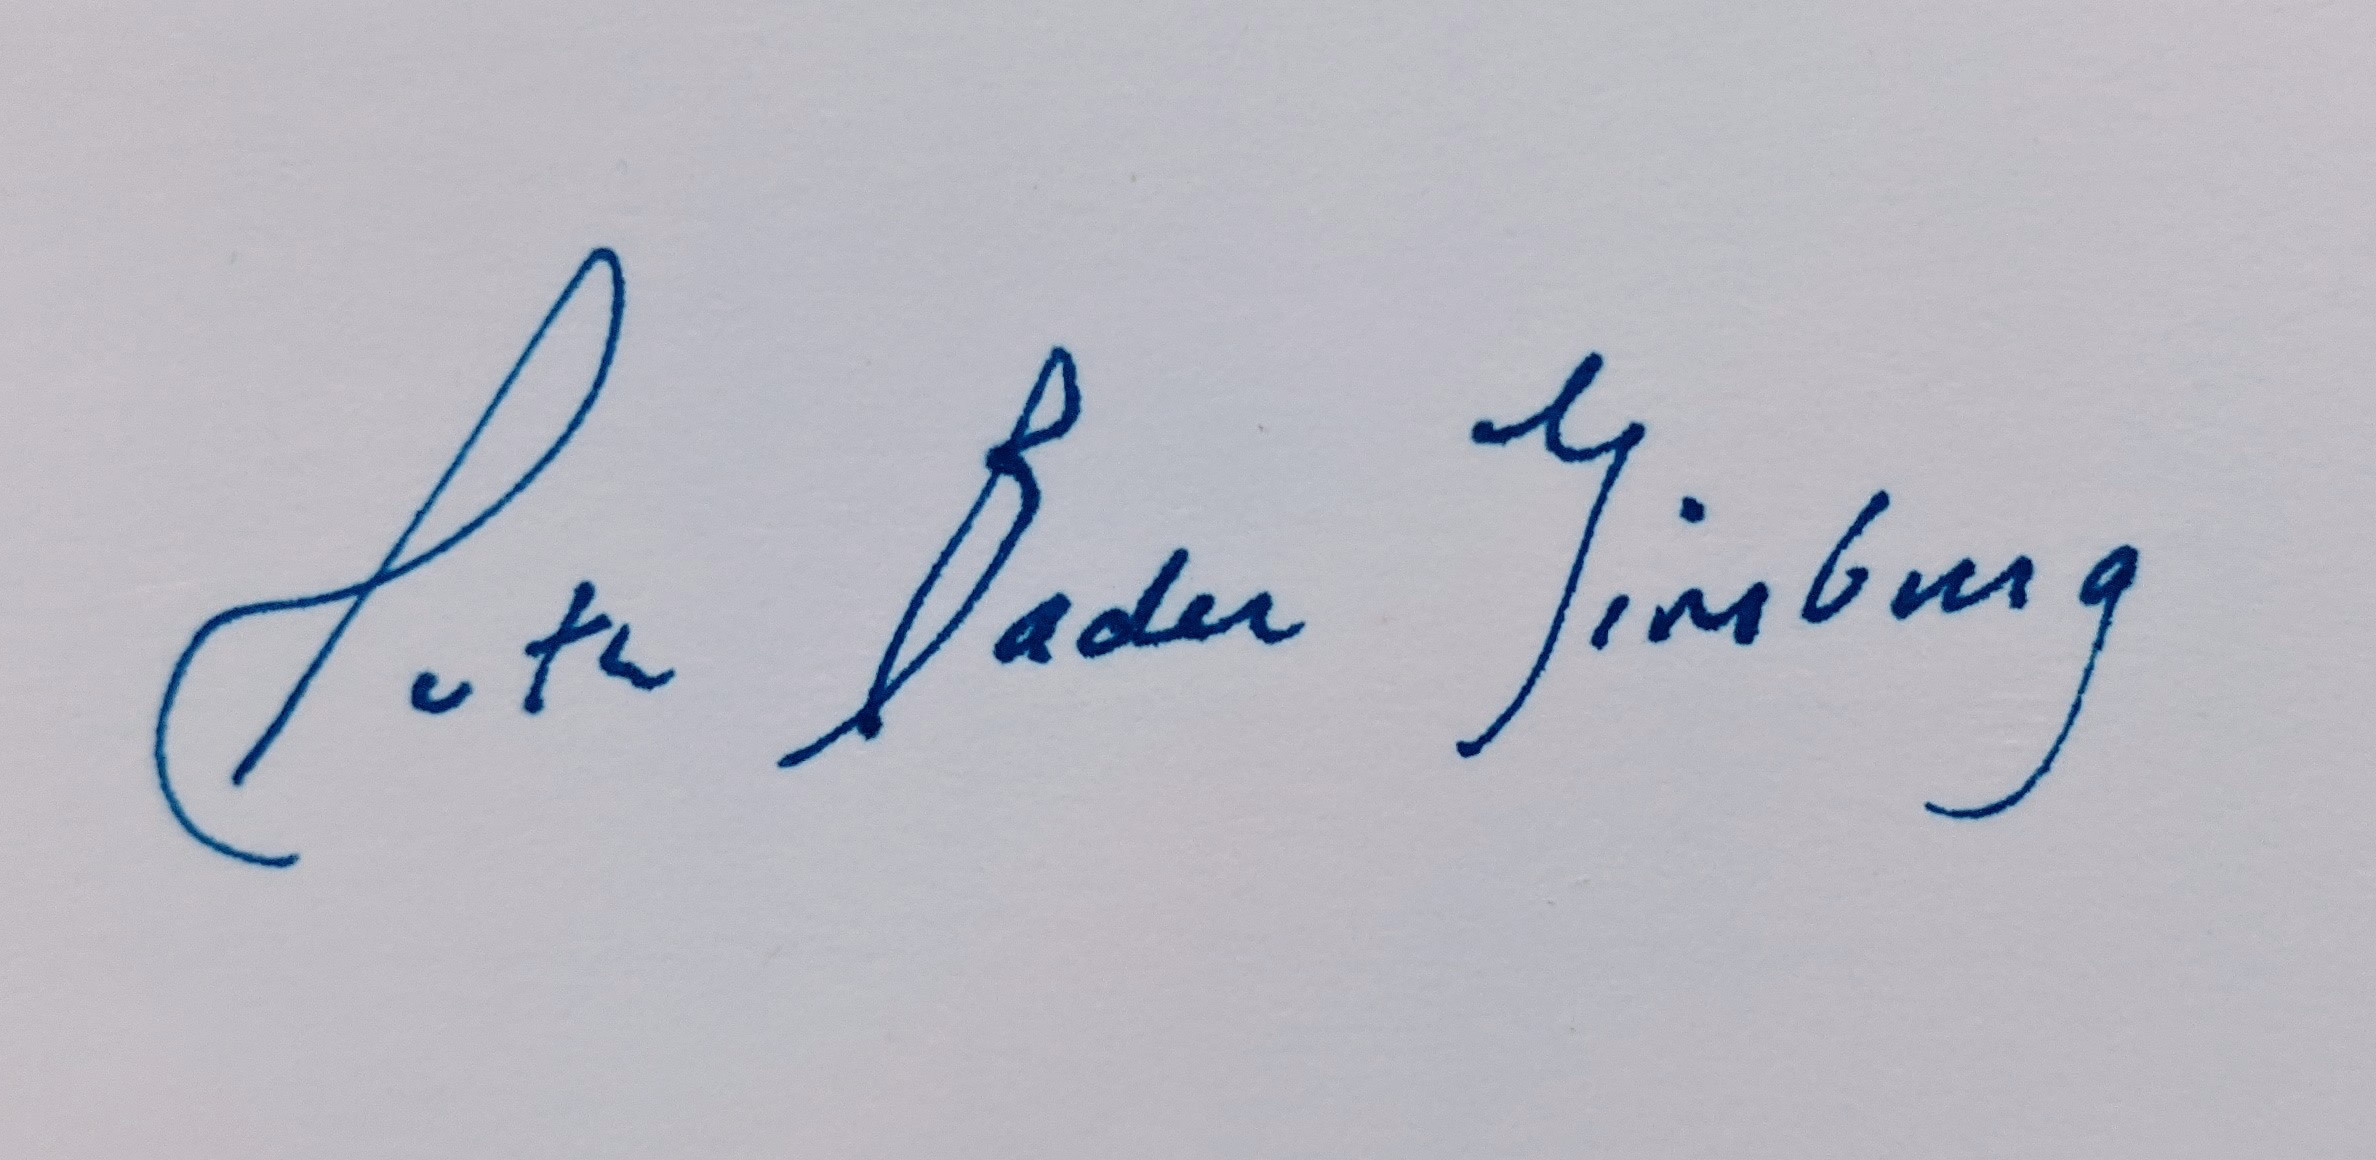 Ruth Bader Ginsburg